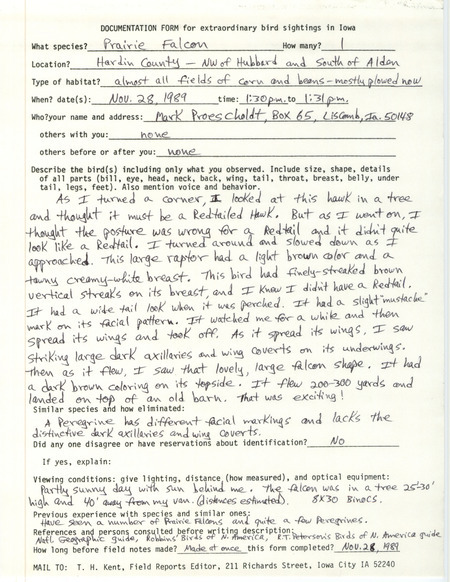 DOCUMENTATION FORM for extraordinary bird sightings in Iowa
What species? Prairie Falcon How many? 1
Location? Hardin County - NW of Hubbard and South of Alden
Type of habitat? almost all fields of corn and beans - mostly plowed now
When? date(s): Nov. 28, 1989 time: 1:30 p.m. to 1:31 p.m.
Who? your name and address: Mark Proescholdt, Box 65, Liscomb, Ia. 50148
others with you: none
others before or after you: none
Describe the bird(s) including only what you observed. Include size, shape, details
of all parts (bill, eye, head, neck, back, wing, tail, throat, breast, belly, under
tail, legs, feet). Also mention voice and behavior.
As I turned a corner, I looked at this hawk in a tree
and thought it must be a Redtailed Hawk. But as I went on, I
thought the posture was wrong for a Redtail and it didn't quite
look like a Redtail. I turned around and slowed down as I
approached. This large raptor had a light brown color and a
tawny creamy-white breast. This bird had finely-streaked brown
vertical streaks on its breast, and I knew I didn't have a Redtail.
It had a wide tail look when it was perched. It had a slight "mustache"
mark on its facial pattern. It watched me for a while and then
spread its wings and took off. As it spread its wings, I saw
striking large dark axillaries and wing coverts on its underwings.
Then as it flew, I saw that lovely, large falcon shape. It had
a dark brown coloring on its topside. It flew 200-300 yards and
landed on top of an old barn. That was exciting!
Similar species and how eliminated:
A Peregrine has different facial markings and lacks the
distinctive dark axillaries and wing coverts.
Did any one disagree or have reservations about identification? No
If yes, explain:
Viewing conditions: give lighting, distance (how measured), and optical equipment:
Partly sunny day with sun behind me. The falcon was in a tree 25-30'
high and 40' away from my van. (distances estimated). 8X30 Binocs.
Previous experience with species and similar ones:
Have seen a number of Prairie Falcons and quite a few Peregrines.
References and persons consulted before writing description:
Nat'l Geographic guide, Robbins' Birds of N. America, R.T. Peterson's Birds of N. America guide
How long before field notes made? Made at once this form completed? Nov. 28, 1989
MAIL TO: T. H. Kent, Field Reports Editor, 211 Richards Street, Iowa City IA 52240